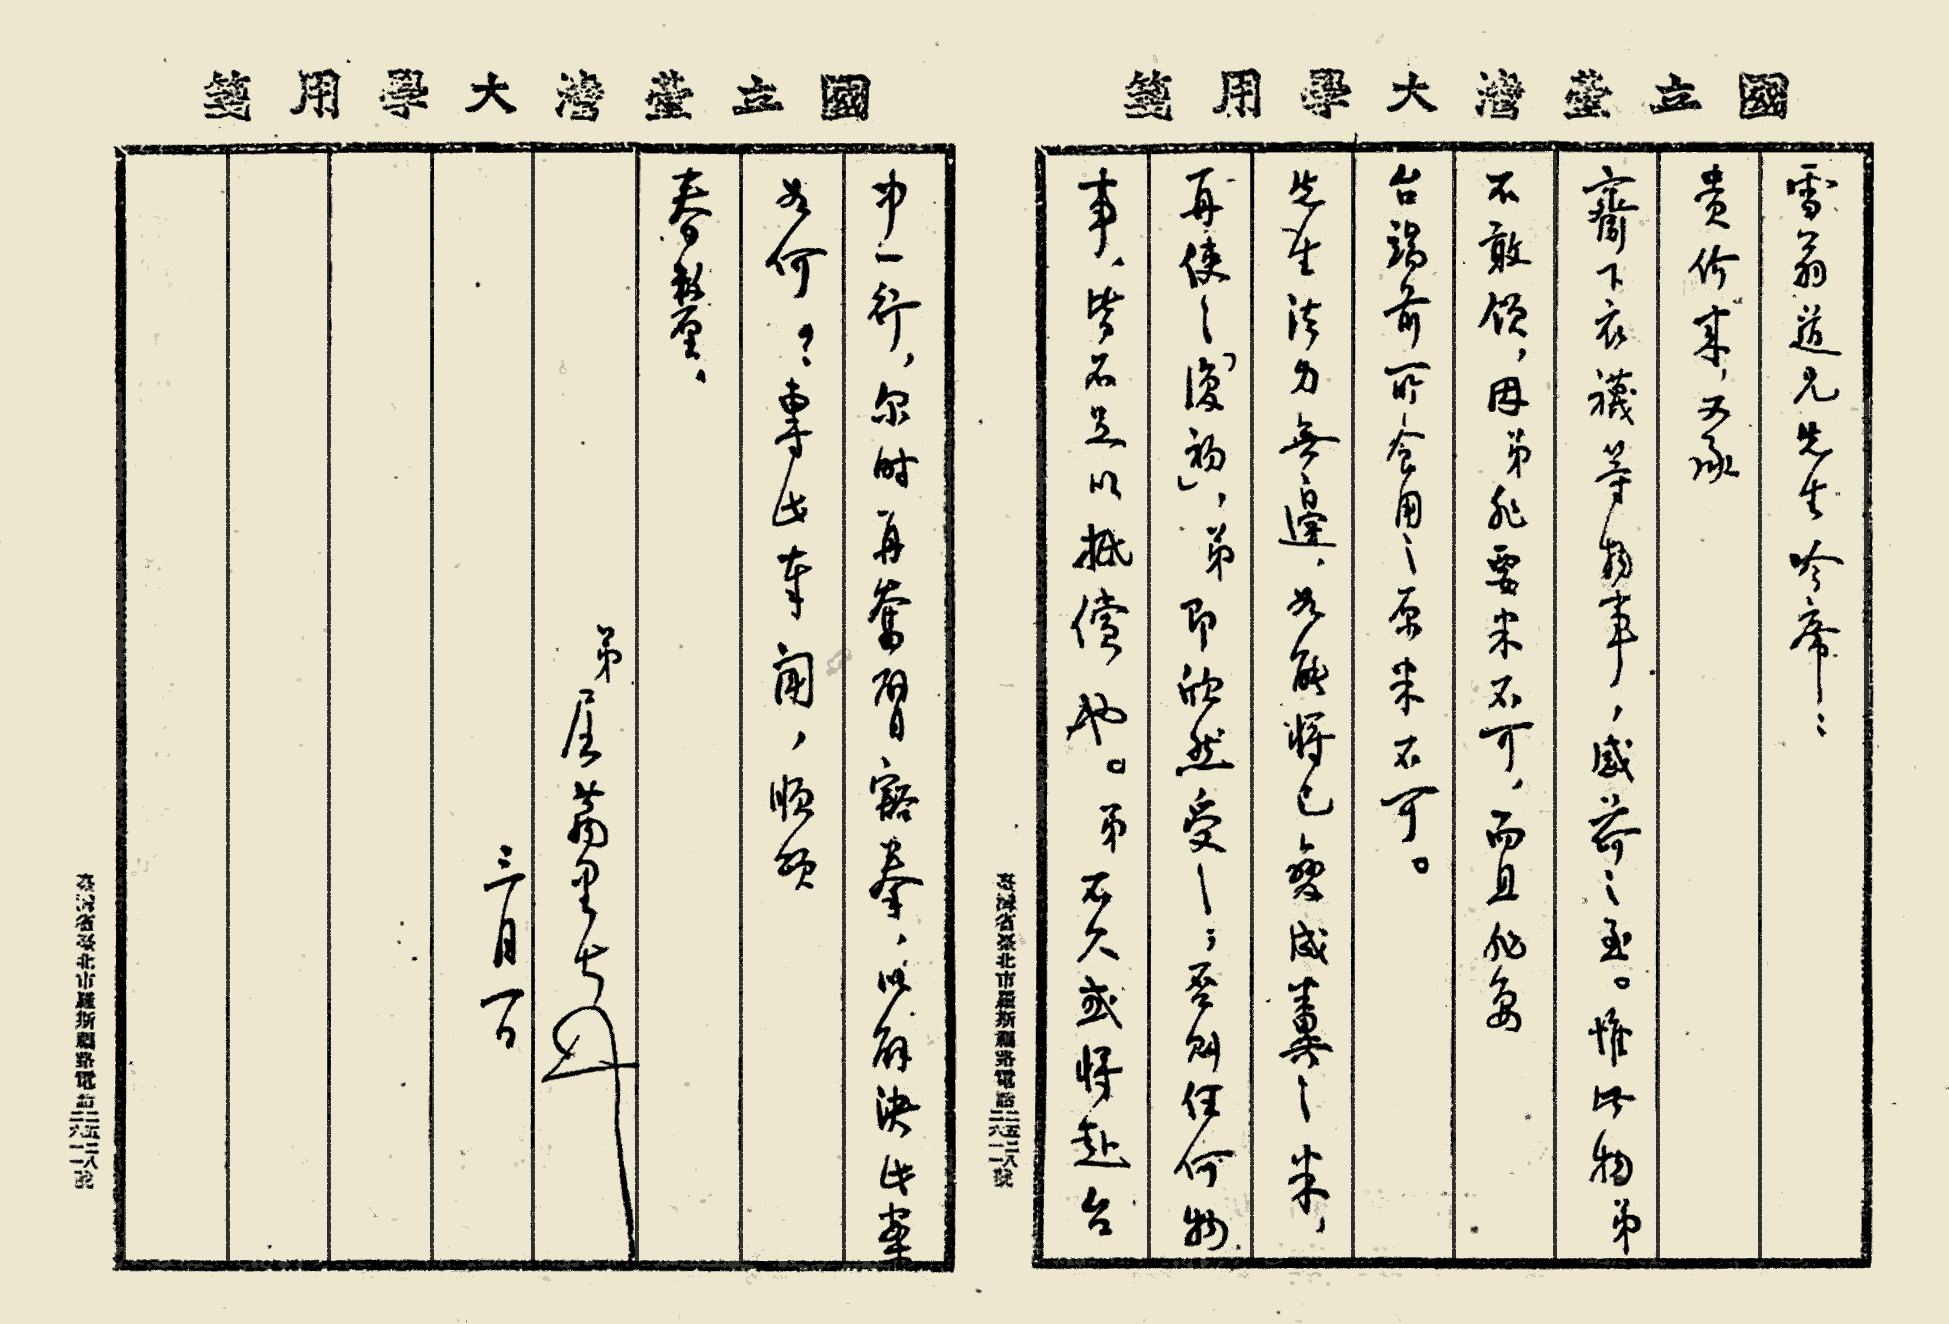 國立臺灣大學用箋
雪翁道兄先生吟席：
貴价來，又承
齎下衣襪等物事，感荷之至。惟此物弟
不敢領，因弟非要米不可，而且非要
台端前所食用之原米不可。
先生法力無邊，如能將已變成糞之米，
再使之「復初」，弟即欣然受之；否則任何物
事，皆不足以抵償也。弟不久或將赴台
臺灣省臺北市羅斯福路電話二五二八 二六一一號
國立臺灣大學用箋
中一行，尔時再奮臂豁拳，以解決此案
如何？專此奉聞，順頌
春釐。
弟屈萬里
三月一日
臺灣省臺北市羅斯福路電話二五二八 二六一一號